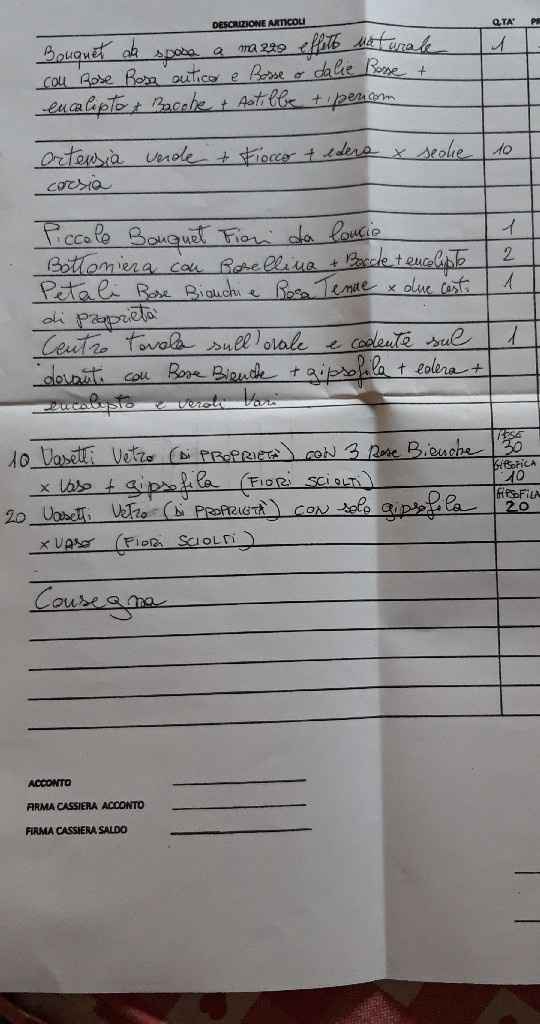 DESCRIZIONE ARTICOLI Q.TA' PR
Bouquet da sposa a mazzo effetto naturale 1
con Rose Rosa antico e Rosse o dalie Rosse +
eucalipto + Bacche + Astilbe + ipericom
Ortensia verde + Fiocco + edera x sedie 10
corsia
Piccolo Bouquet Fiori da lancio 1
Bottoniera con Rosellina + Bacche + eucalipto 2
Petali Rose Bianchi e Rosa Tenue x due cesti 1
di proprietà
Centro Tavola sull'ovale e cadente sul 1
davanti con Rose Bianche + gipsofila + edera +
eucalipto e verdi Vari
10 Vasetti Vetro (DI PROPRIETÀ) CON 3 Rose Bianche ROSE 30
x Vaso + gipsofila (FIORI SCIOLTI) GIPSOFILA 10
20 Vasetti Vetro (DI PROPRIETÀ) CON solo gipsofila GIPSOFILA 20
x VASO (FIORI SCIOLTI)
Consegna
ACCONTO
FIRMA CASSIERA ACCONTO
FIRMA CASSIERA SALDO